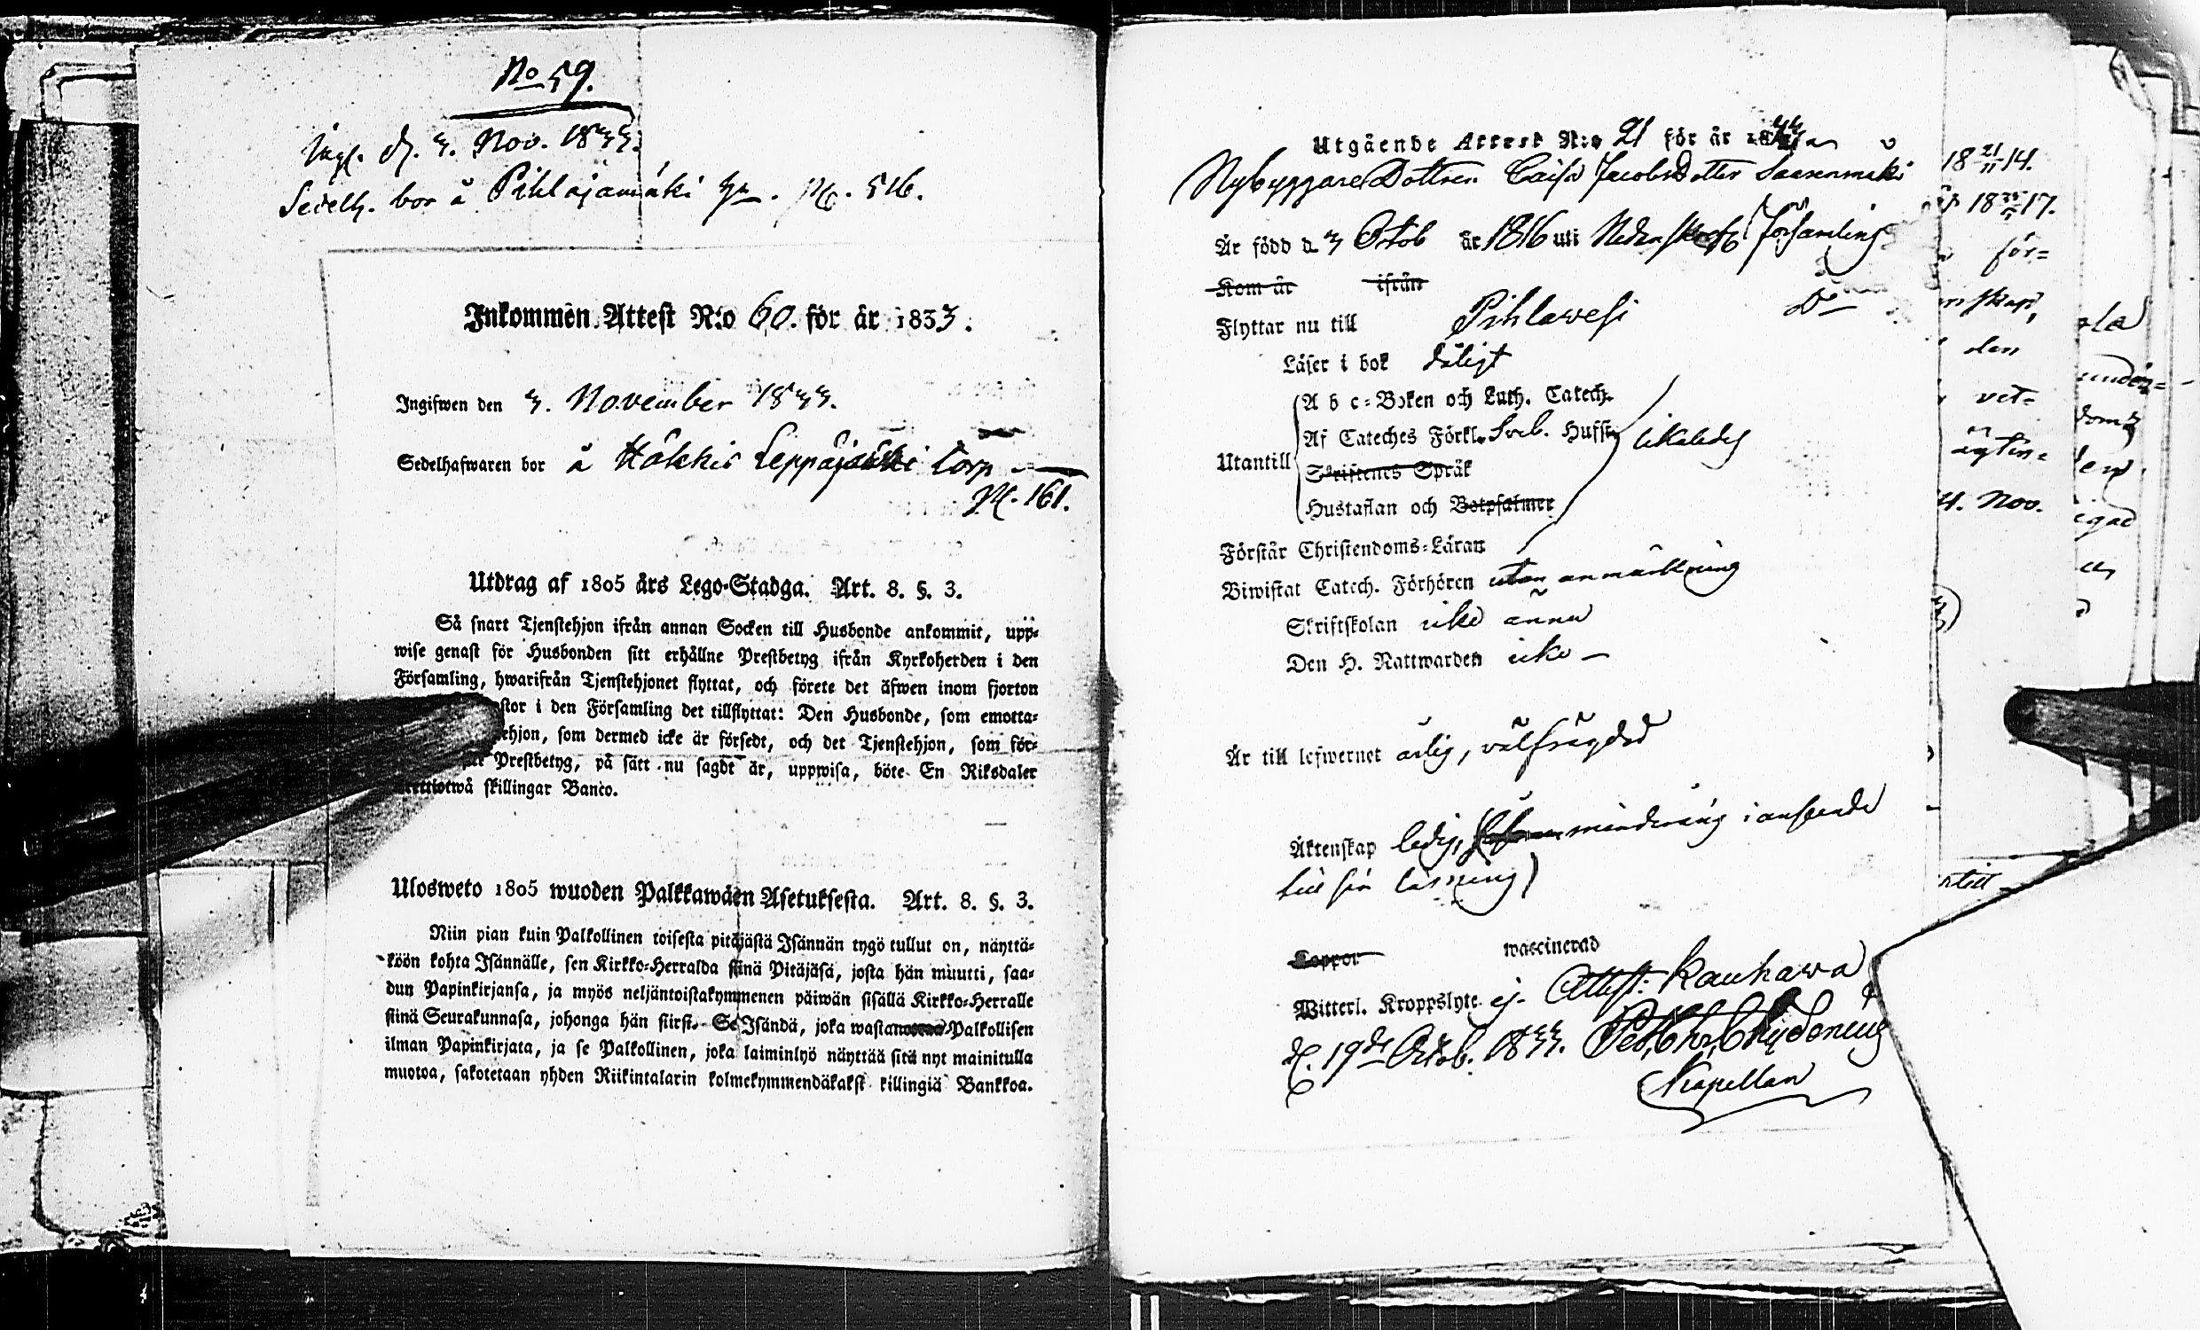 No 59.
Ingf. d. 3. Nov. 1833.
Sedelh. bor å Pihlajamäki
516.
Inkommen Attest N:o 60. för år 1833.
Ingifwen den 3. November 1833.
Sedelhafwaren bor å Häkkis Leppäjärki Torp
161.
Utdrag af 1805 års Lego-Stadga. Art. 8. §. 3.
Så snart Tjenstehjon ifrån annan Socken till Husbonde ankommit, upp-
wise genast för Husbonden sitt erhållne Prestbetyg ifrån Kyrkoherden i den
Församling, hwarifrån Tjenstehjonet flyttat, och förete det äfwen inom fjorton
stor i den Församling det tillflyttat: Den Husbonde, som emotta-
ehjon, som dermed icke är försedt, och det Tjenstehjon, som för-
Prestbetyg, på sätt nu sagdt är, uppwisa, böte En Riksdaler
skillingar Banco.
Ulosweto 1805 wuoden Palkkawäen Asetuksesta. Art. 8. §. 3.
Niin pian kuin Palkollinen toisesta pitäjästä Isännän tygö tullut on, näyttä-
köön kohta Isännälle, sen Kirkko-Herralda siinä Pitäjäsä, josta hän muutti, saa-
dun Papinkirjansa, ja myös neljäntoistakymmenen päiwän sisällä Kirkko-Herralle
siinä Seurakunnasa, johonga hän siirst. Se Isändä, joka Palkollisen
ilman Papinkirjata, ja se Palkollinen, joka laiminlyö näyttää sitä nyt mainitulla
muotoa, sakotetaan yhden Riikintalarin kolmekymmendäkaksi killingiä Bankkoa.
Utgående Attest N:o 21 för år 1833
Nybyggare Dottren Caisa Jacobs Dotter Saarenmäki
Är född d. 3 Octob år 1816 uti Församling
Kom år ifrån
Flyttar nu till Pihlawesi Do
Läser i bok dåligt
A b c-Boken och Luth. Catech.
Af Cateches Förkl. Sveb. Hufst likaledes
Utantill
Skriftenes Språk
Hustaflan och Botpsalmer
Förstår Christendoms-Läran
Biwistat Catech. Förhören utan anmärkning
Skriftskolan icke ännu
Den H. Nattwarden icke
Är till lefwernet ärlig, välfrägdad
Äktenskap ledig, minderårig i anseende
till sin läsning)
Koppor waccinerad
Witterl. Kroppslyte ej. Attest: Kauhava
d. 19de Octob. 1833. Pet. Chr. Chydenius
Kapellan
18 21/11 14.
17.
för=
skap,
den
vet=
ägten=
Nov.